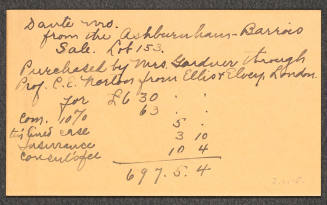 Dante mo.
from the Ashburnham-Barrois
Sale. Lot 153.
Purchased by Mrs. Gardner through
Prof. C. E. Norton from Ellis & Elvey, London
for £630 . .
Com. 10% 63 . .
tin lined case 5 .
Insurance 3 10
Consul's fee 10 4
697. 5. 4